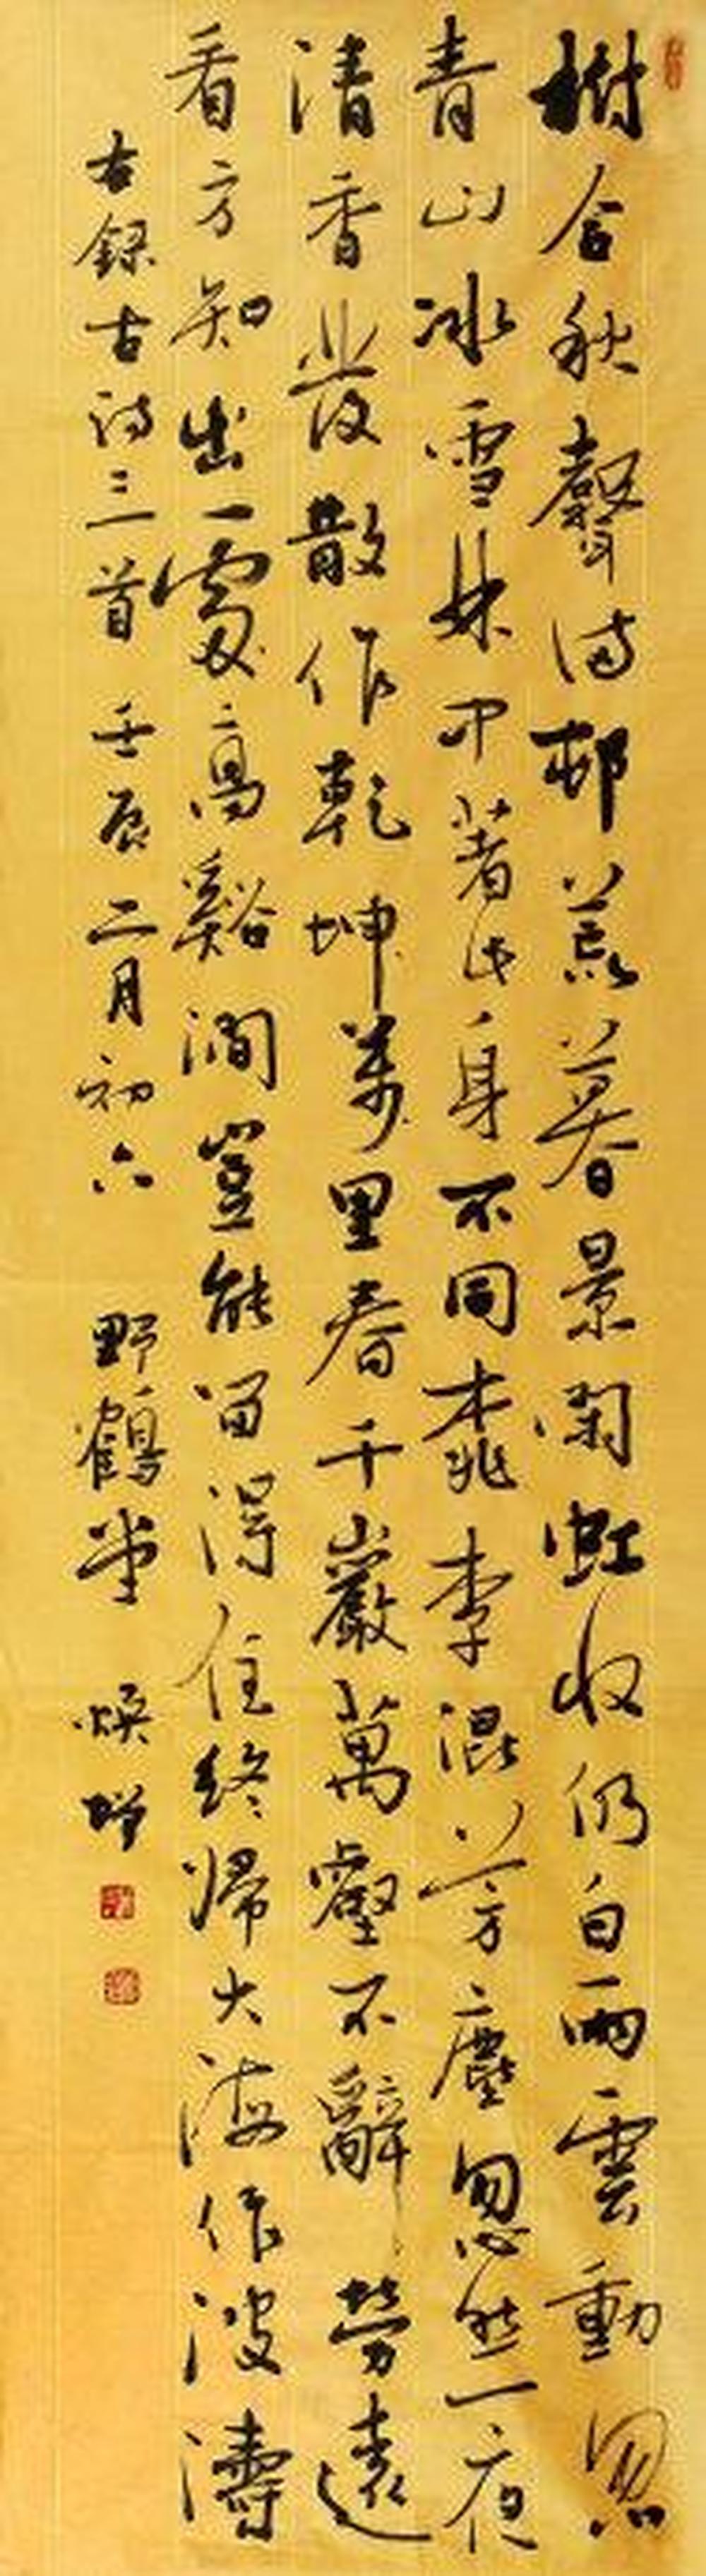 樹合秋聲满邨荒暮景閑虹收仍白雨雲動忽
青山冰雪林中著此身不同桃李混芳塵忽然一夜
清香發散作乾坤萬里春千巖萬壑不辭勞遠
看方知出處高谿澗豈能留得住終歸大海作波濤
右錄古詩三首 壬辰二月初六 野鶴堂 煥增